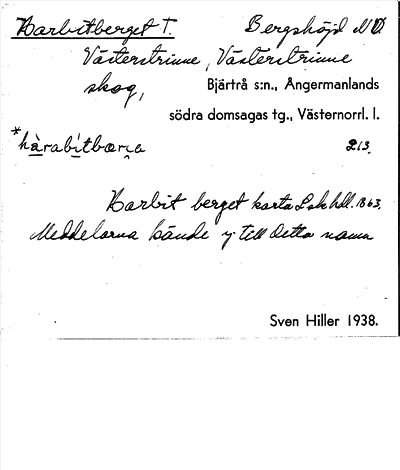 Harbitberget T. Bergshöjd NO
Västerstrinne, Västerstrinne
skog, Bjärtrå s:n., Ångermanlands
södra domsagas tg., Västernorrl. l.
*hàrabitbærja 213.
Harbit berget karta Lsk hdl. 1863.
Meddelarna kände ej till detta namn
Sven Hiller 1938.